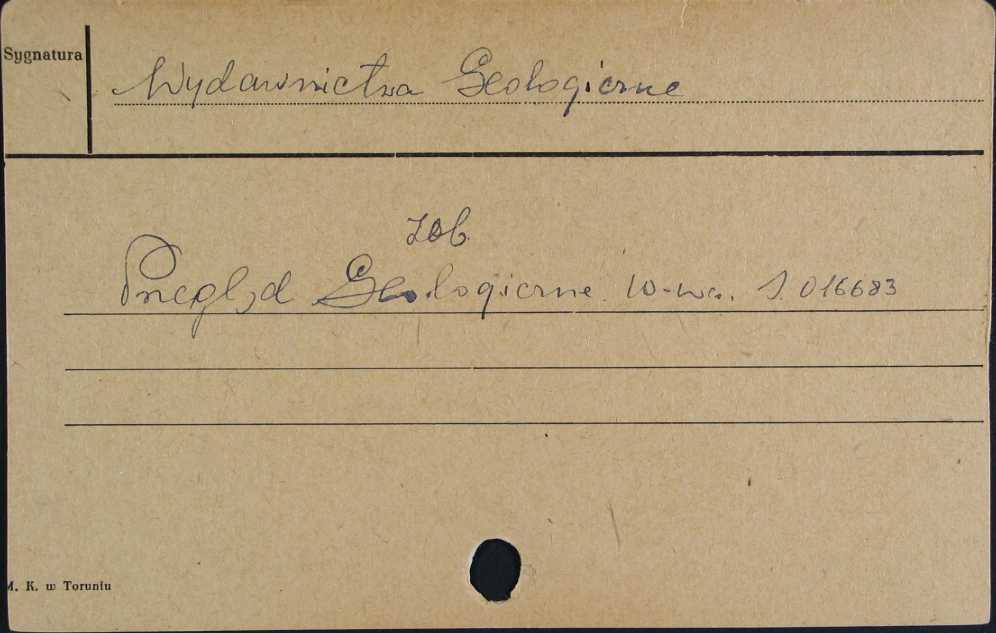 Sygnatura
Wydawnictwa Geologiczne
zob.
Przegląd Geologiczne. W-wa. S. 016683
M. K. w Toruniu